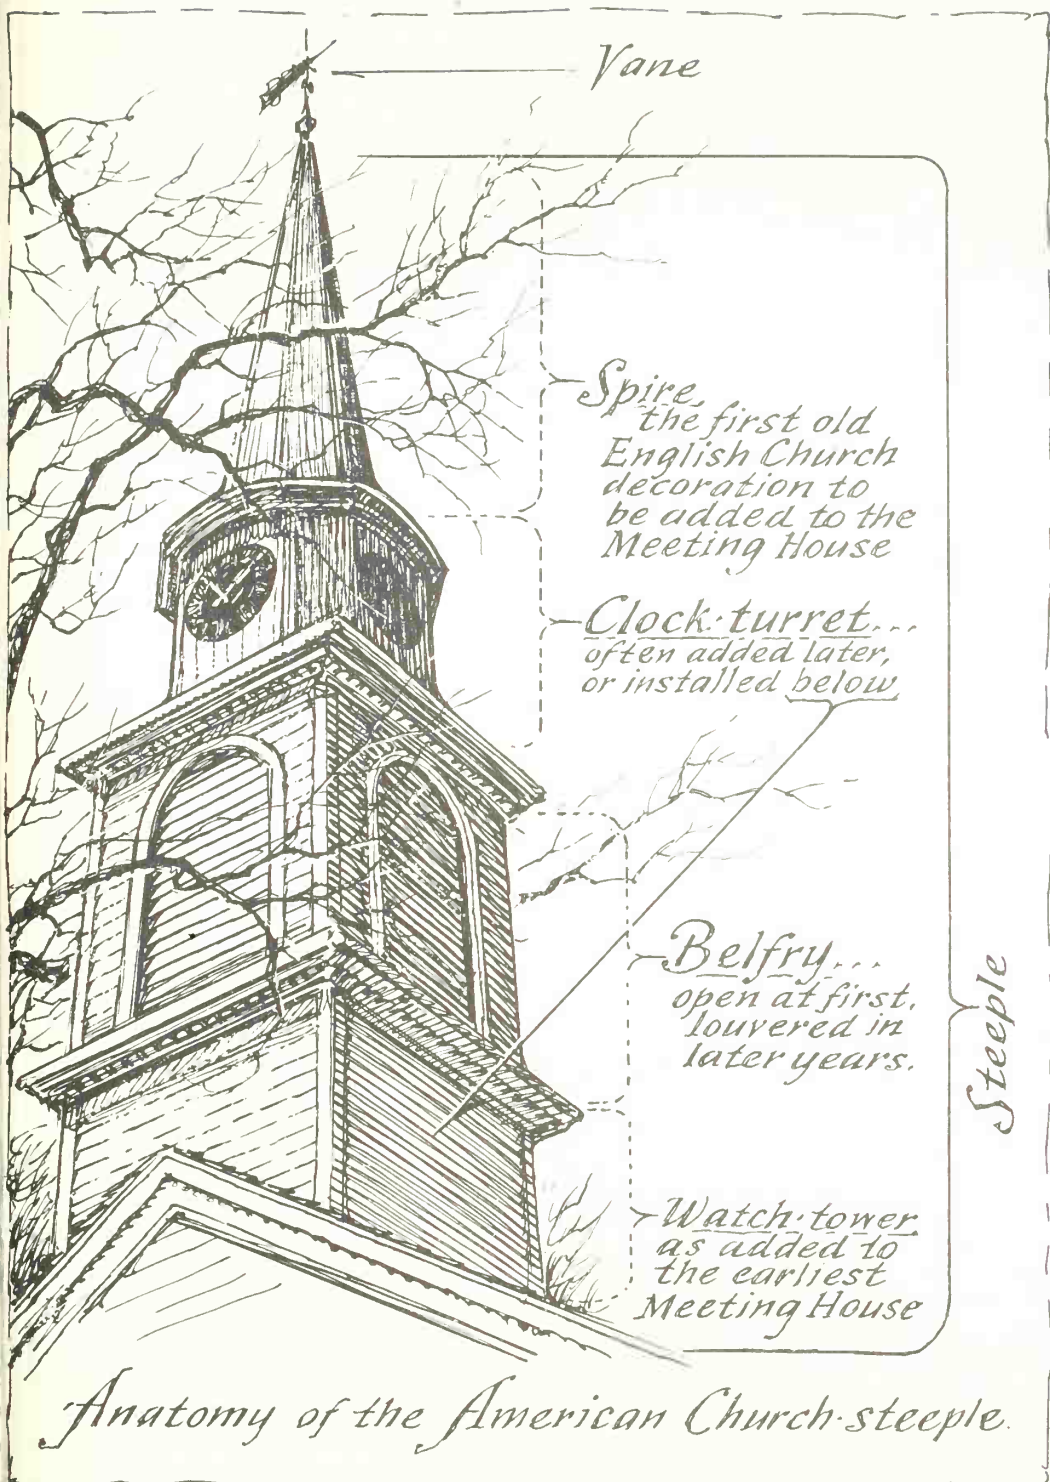 Vane
Spire,
the first old
English Church
decoration to
be added to the
Meeting House
Clock·turret...
often added later,
or installed below
Belfry...
open at first,
louvered in
later years.
Steeple
Watch·tower
as added to
the earliest
Meeting House
Anatomy of the American Church·steeple.